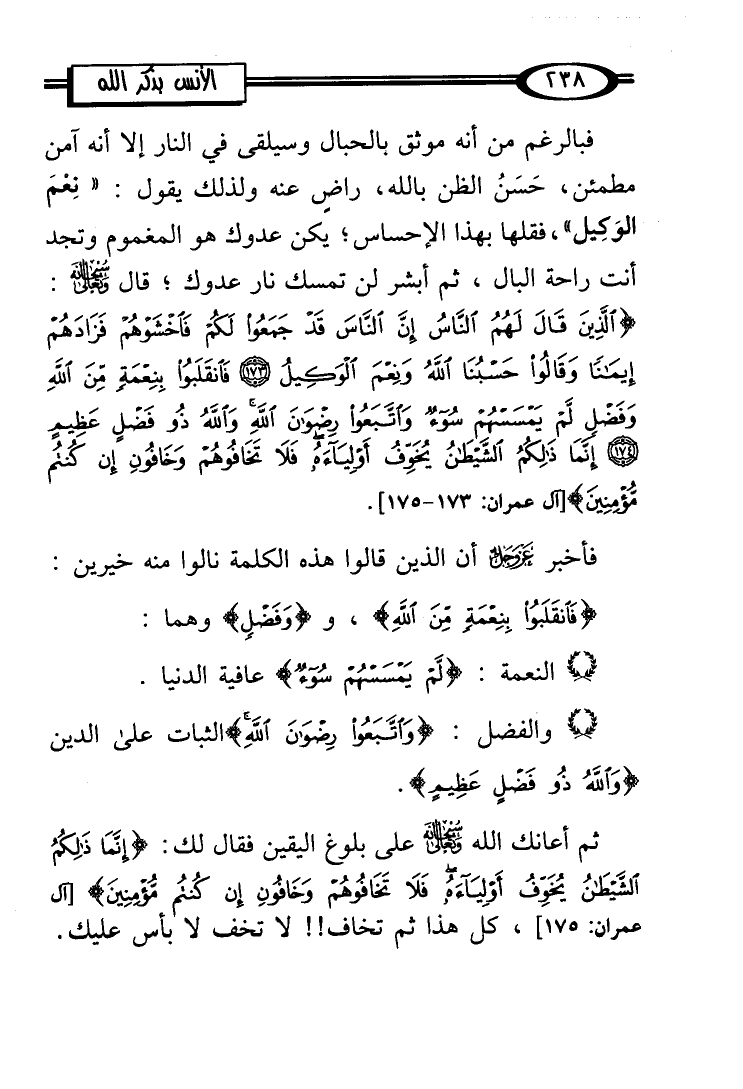 ٢٣٨ الأنس بذكر الله
فبالرغم من أنه موثق بالحبال وسيلقى في النار إلا أنه آمن
مطمئن، حَسَنُ الظن بالله، راضٍ عنه ولذلك يقول : « نِعْمَ
الوَكِيل»،فقلها بهذا الإحساس؛ يكن عدوك هو المغموم وتجد
أنت راحة البال ، ثم أبشر لن تمسك نار عدوك ؛ قال سُبْحَانَهُ وَتَعَالَى :
﴿ٱلَّذِينَ قَالَ لَهُمُ ٱلنَّاسُ إِنَّ ٱلنَّاسَ قَدْ جَمَعُوا۟ لَكُمْ فَٱخْشَوْهُمْ فَزَادَهُمْ
إِيمَـٰنًا وَقَالُوا۟ حَسْبُنَا ٱللَّهُ وَنِعْمَ ٱلْوَكِيلُ ١٧٣ فَٱنقَلَبُوا۟ بِنِعْمَةٍ مِّنَ ٱللَّهِ
وَفَضْلٍ لَّمْ يَمْسَسْهُمْ سُوٓءٌ وَٱتَّبَعُوا۟ رِضْوَٰنَ ٱللَّهِ ۗ وَٱللَّهُ ذُو فَضْلٍ عَظِيمٍ
١٧٤ إِنَّمَا ذَٰلِكُمُ ٱلشَّيْطَـٰنُ يُخَوِّفُ أَوْلِيَآءَهُۥ فَلَا تَخَافُوهُمْ وَخَافُونِ إِن كُنتُم
مُّؤْمِنِينَ﴾[آل عمران: ١٧٣-١٧٥].
فأخبر عَزَّ وَجَلَّ أن الذين قالوا هذه الكلمة نالوا منه خيرين :
﴿فَٱنقَلَبُوا۟ بِنِعْمَةٍ مِّنَ ٱللَّهِ﴾ ، و ﴿وَفَضْلٍ﴾ وهما :
النعمة : ﴿لَّمْ يَمْسَسْهُمْ سُوٓءٌ﴾ عافية الدنيا .
والفضل : ﴿وَٱتَّبَعُوا۟ رِضْوَٰنَ ٱللَّهِ ۗ﴾الثبات على الدين
﴿وَٱللَّهُ ذُو فَضْلٍ عَظِيمٍ﴾.
ثم أعانك الله سُبْحَانَهُ وَتَعَالَى على بلوغ اليقين فقال لك: ﴿إِنَّمَا ذَٰلِكُمُ
ٱلشَّيْطَـٰنُ يُخَوِّفُ أَوْلِيَآءَهُۥ فَلَا تَخَافُوهُمْ وَخَافُونِ إِن كُنتُم مُّؤْمِنِينَ﴾ [آل
عمران: ١٧٥] ، كل هذا ثم تخاف!! لا تخف لا بأس عليك.